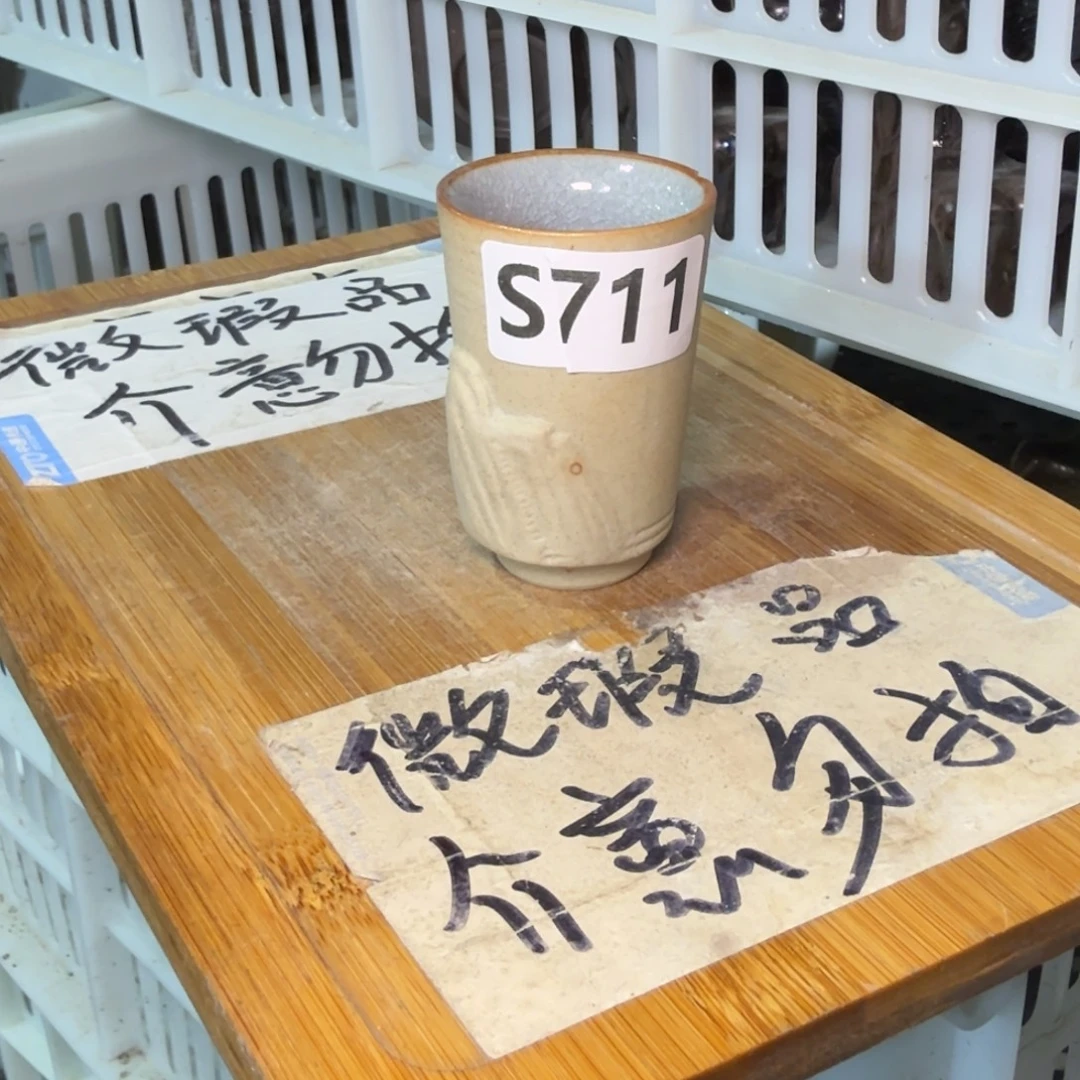 微瑕品
介意勿拍
S711
微瑕品
介意勿拍